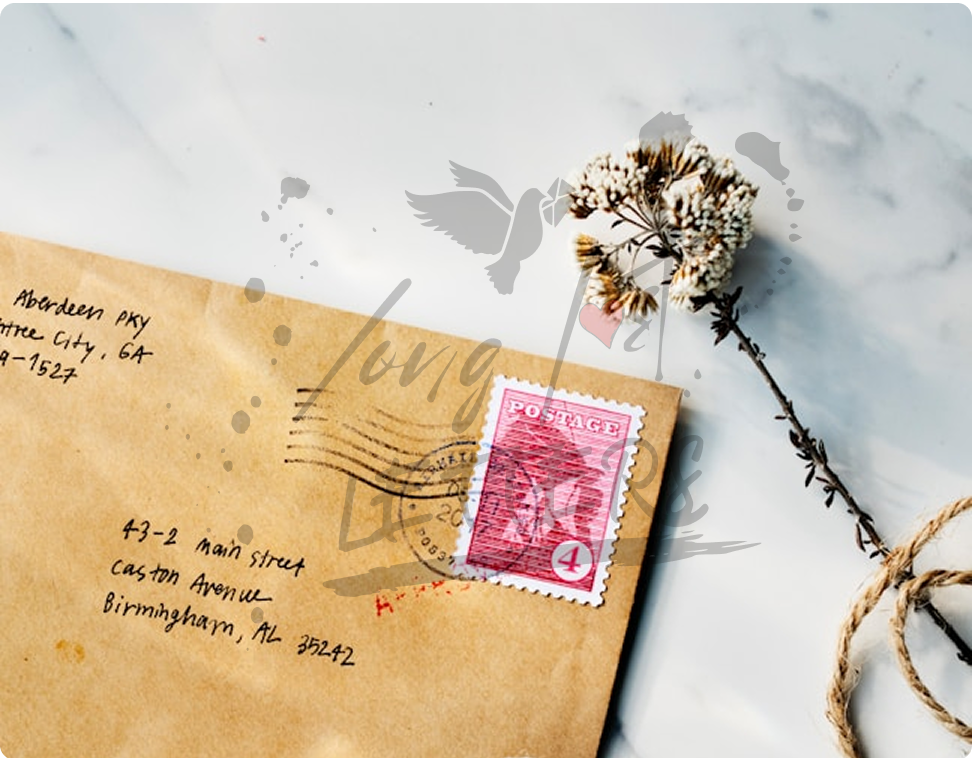 Aberdeen PKY
City, GA
-1527
POSTAGE
4
43-2 main street
caston Avenue
Birmingham, AL 35242
Long
LETTERS